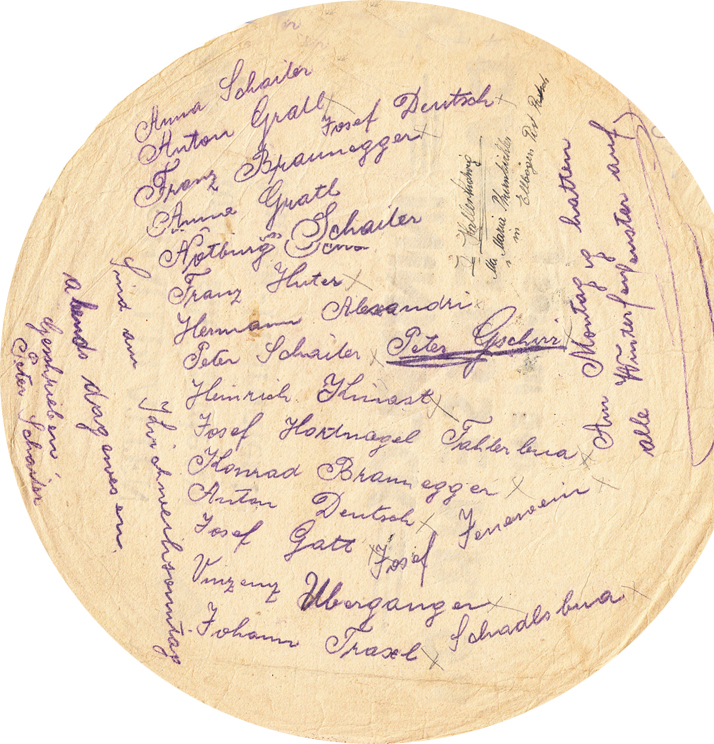 Anna Schailer
Anton Gratl Josef Deutsch
Franz Braunegger
Anna Gratl
Notburg Schailer
Franz Huter
Hermann Alexandri
Peter Schailer Peter Gschirr
Heinrich Kinast
Josef Hortnagel Tahlerbua
Konrad Braunegger
Anton Deutsch
Josef Gatt Josef Jenewein
Vinzenz Uberganger
Johann Traxl Schadlsbua
Sind am Kirchweihsonntag
abends dagewesen.
Geschrieben
Peter Schailer
Am Montag hatten
alle Winterfenster auf
Maria
in Ellbögen